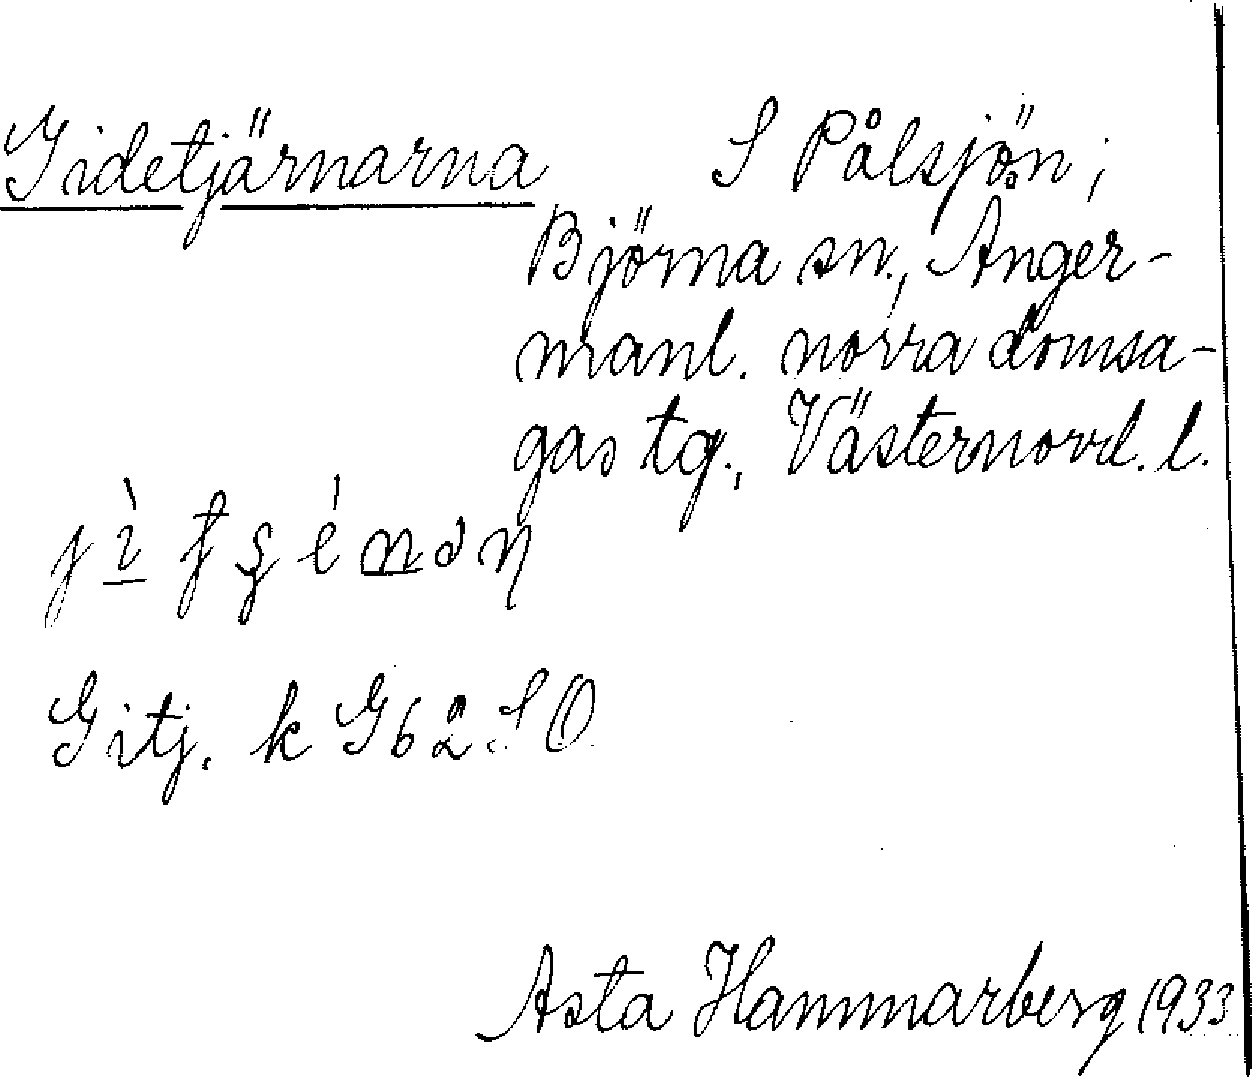 Gidetjärnarna S Pålsjön;
Björna sn., Ånger-
manl. norra domsa-
gas tg., Västernorrl. l.
Gitj. k G62 SO
Asta Hammarberg 1933